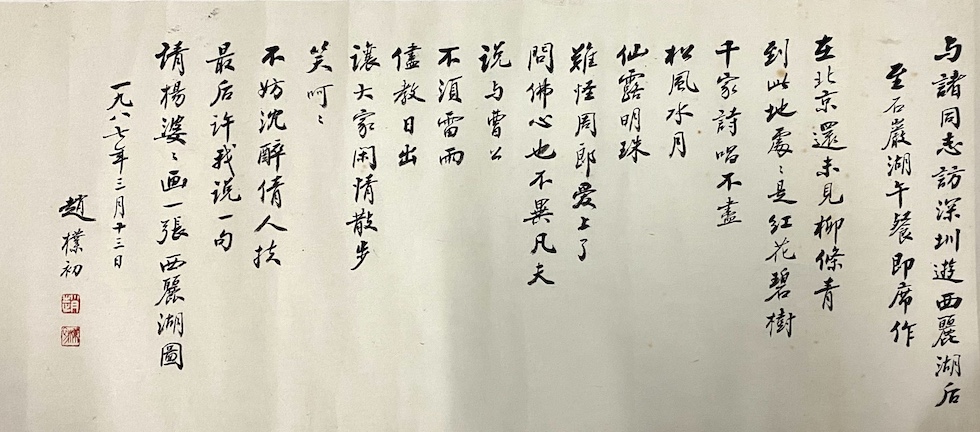 与諸同志訪深圳遊西麗湖后
至石巖湖午餐即席作
在北京還未見柳條青
到此地處〻是紅花碧樹
千家詩唱不盡
松風水月
仙露明珠
難怪周郎愛上了
問佛心也不異凡夫
说与曹公
不須雷雨
儘教日出
讓大家闲情散步
笑呵〻
不妨沈醉倩人扶
最后许我说一句
請楊婆〻画一張西麗湖圖
一九八七年三月十三日
趙樸初
趙
樸初